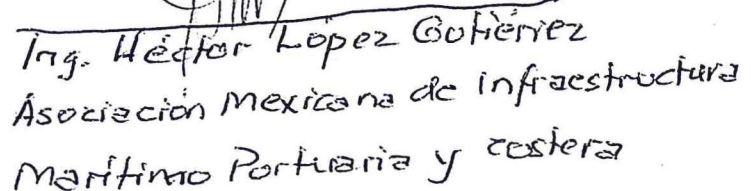 Ing. Héctor López Gutiérrez
Asociación Mexicana de infraestructura
Marítimo Portuaria y costera